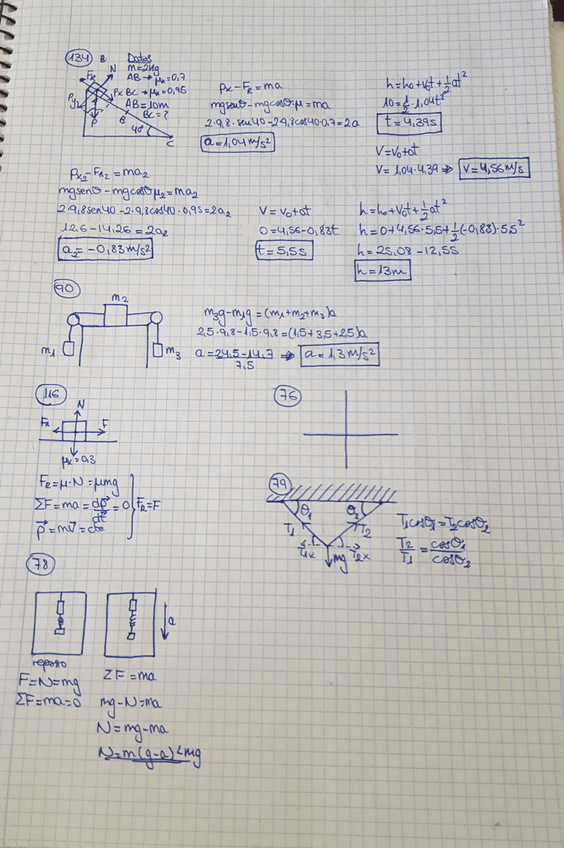 134
B
Datos
m=2Kg
AB → μk=0,7
BC → μk=0,95
AB=10m
BC=?
N
FR
Px
Py
P
B
40°
C
Px-FR=ma
mgsenθ-mgcosθμ=ma
2·9,8·sen40-2·9,8cos40·0,7=2a
a=1,04m/s²
h=h0+v0t+½at²
10=½·1,04t²
t=4,39s
V=V0+at
V=1,04·4,39 ⇒ V=4,56m/s
Px2-FR2=ma2
mgsenθ-mgcosθμ2=ma2
2·9,8sen40-2·9,8cos40·0,95=2a2
12,6-14,26=2a2
a2=-0,83m/s²
V=V0+at
0=4,56-0,83t
t=5,5s
h=h0+V0t+½at²
h=0+4,56·5,5+½(-0,83)·5,5²
h=25,08-12,55
h=13m
90
m2
m1
m3
m3g-m1g=(m1+m2+m3)a
2,5·9,8-1,5·9,8=(1,5+3,5+2,5)a
a=24,5-14,7/7,5 ⇒ a=1,3m/s²
116
N
FR
F
μk=0,3
FR=μ·N=μmg
ΣF=ma=dp/dt=0
FR=F
76
79
θ1
θ2
T1
T2
T1x
mg
T2x
T1cosθ1=T2cosθ2
T2/T1=cosθ1/cosθ2
78
a
reposo
F=N=mg
ΣF=ma=0
ΣF=ma
mg-N=ma
N=mg-ma
N=m(g-a)<mg